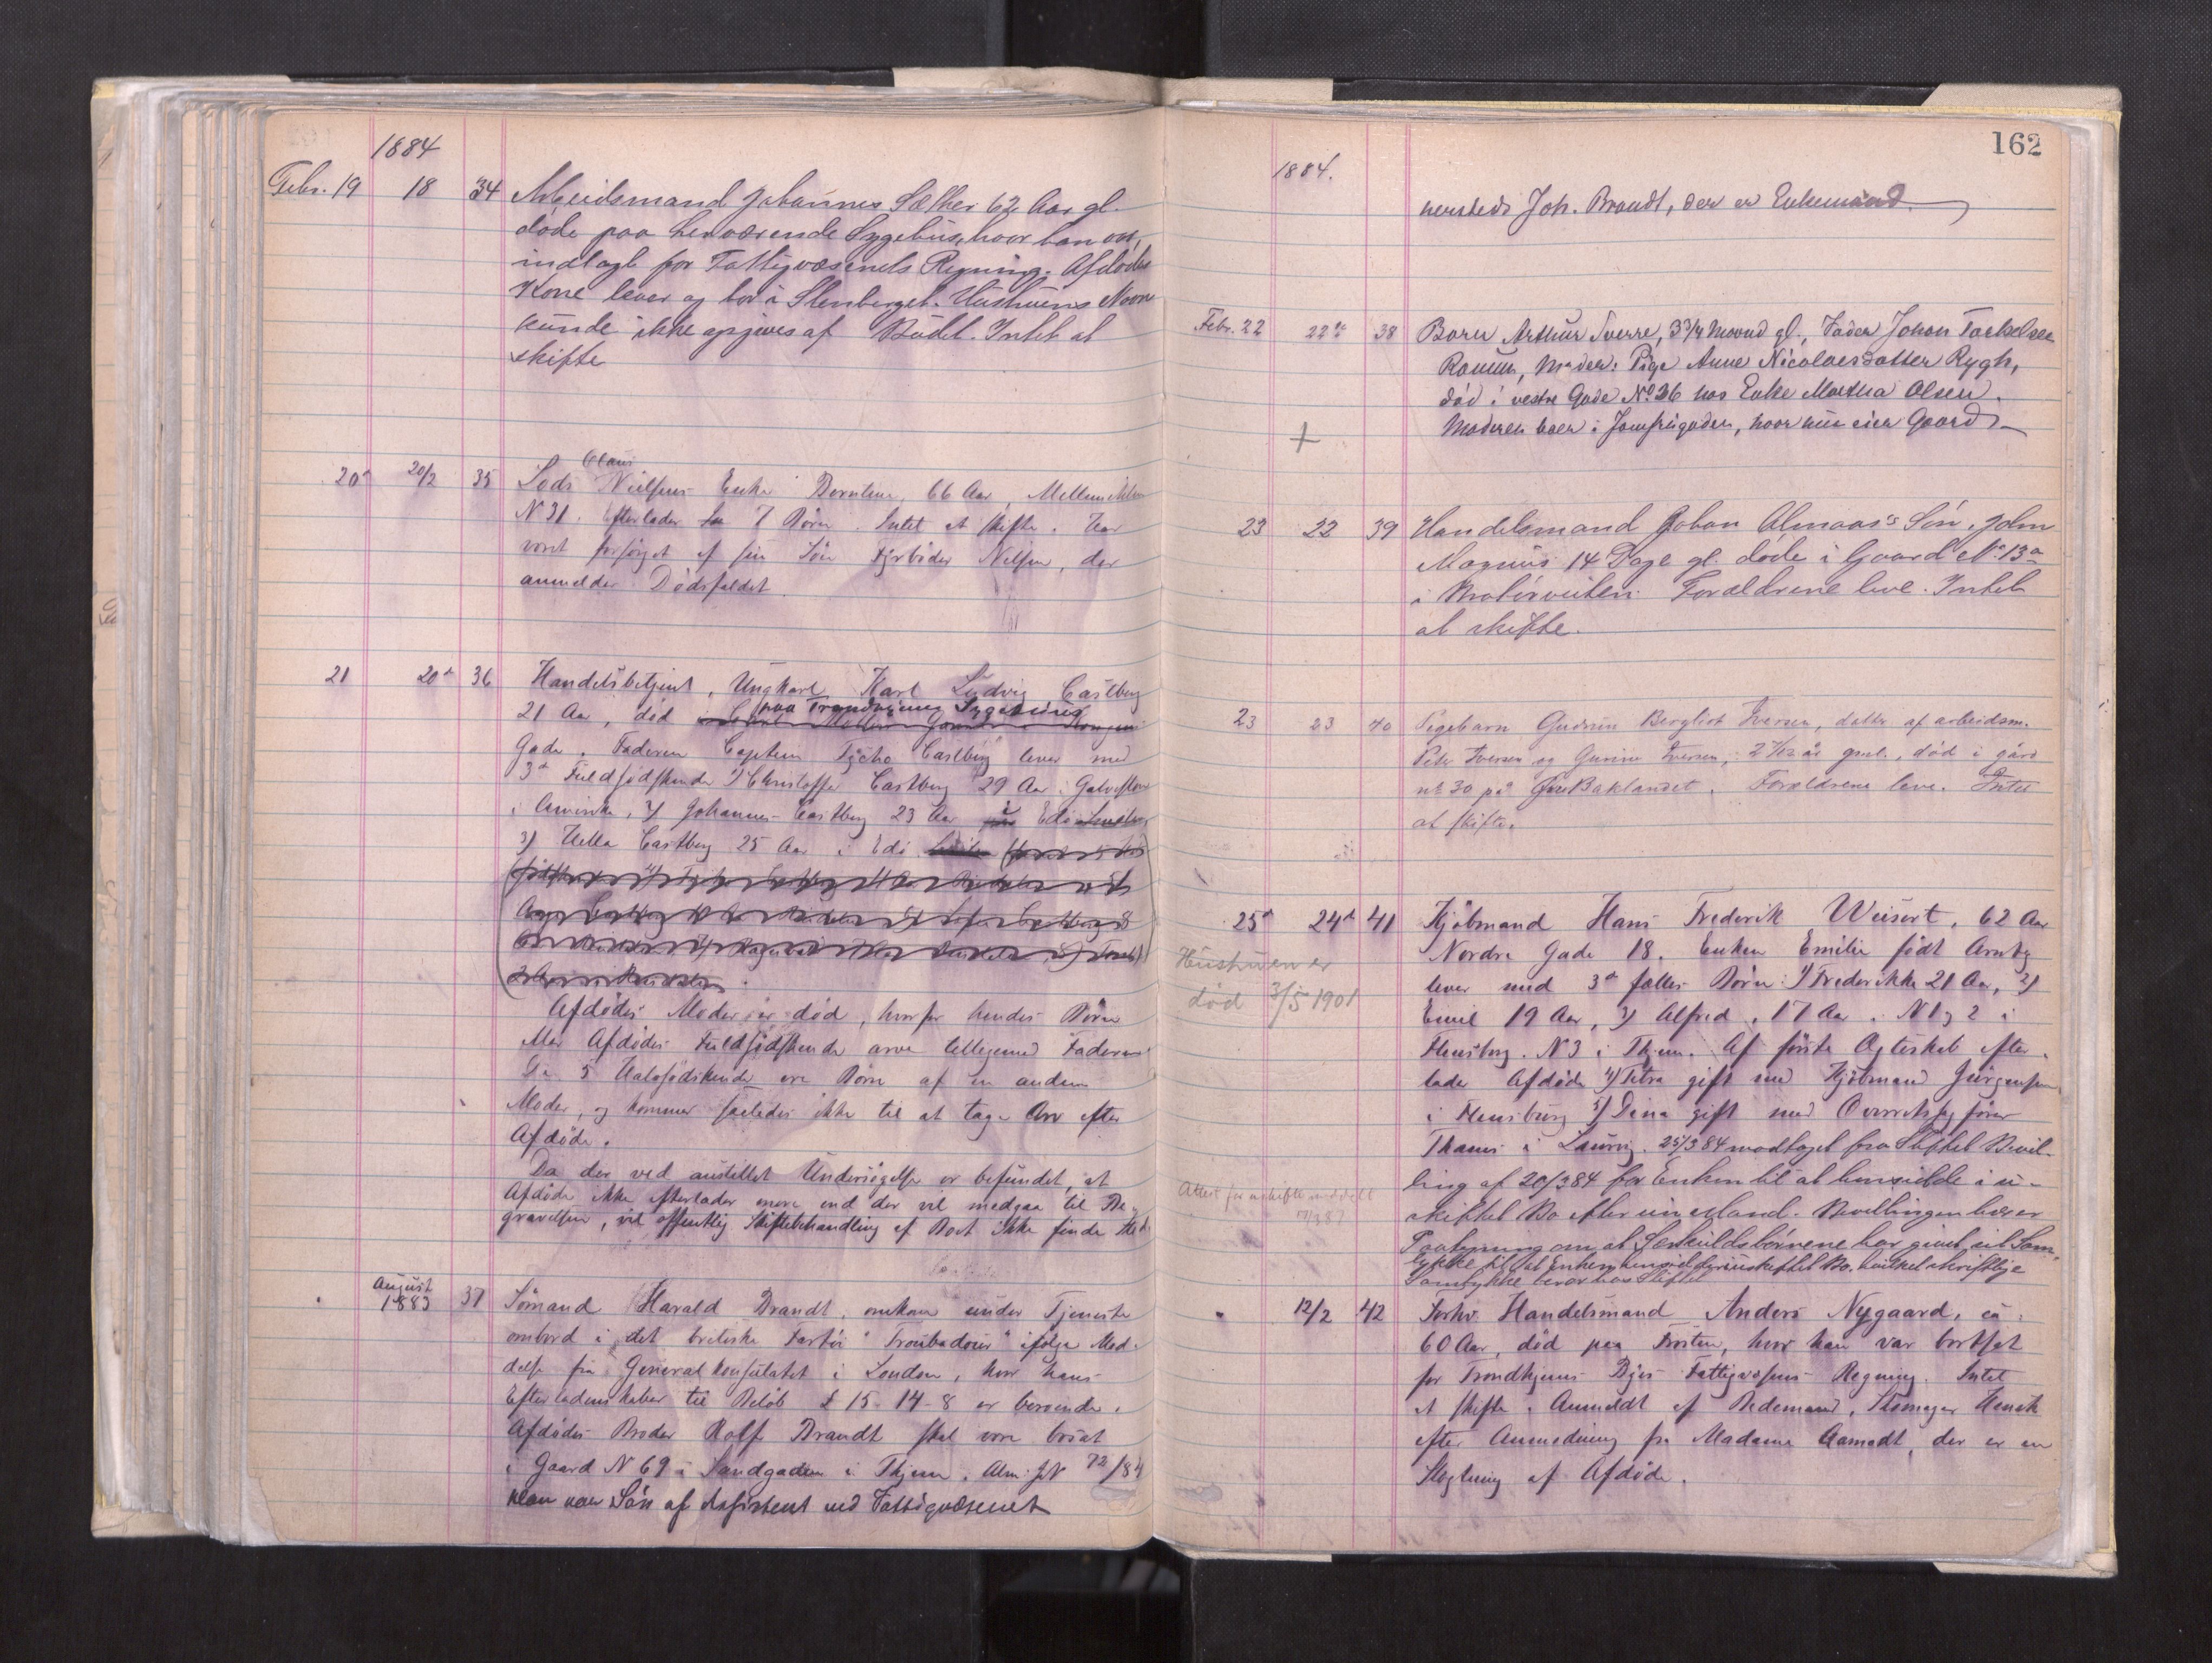 1884
Febr. 19 18 34 Arbeidsmand Johannes Sæther 62 Aar gl.
døde paa herværende Sygehus, hvor han var
indlagt for Fattigvæsenets Regning. Afdødes
Kone lever og bor i Stenberget. Hustruens Navn
kunde ikke opgives af Budet. Intet at
skifte
20de 20/2 35 Lods Claus Nielsens Enke Berntine, 66 Aar, Mellem
N 31. Efterlader 7 Børn. Intet at skifte. Har
været forsørget af sin Søn Fyrbøder Nilsen, der
anmelder Dødsfaldet.
21 20de 36 Handelsbetjent, Ungkarl Karl Ludvig Castberg
21 Aar, død paa Trondhjems Sygehus
Gade. Faderen Captein Tycho Castberg lever med
3de Fuldsødskende 1) Christoffer Castberg 29 Aar i Galveston
i Amerika, 2) Johannes Castberg 23 Aar i Edø
3) Hella Castberg 25 Aar i Edø
Afdødes Moder er død, hvorfor hendes Børn
Afdødes Fuldsødskende arve tilligemed Faderen.
De 5 Halvsødskende ere Børn af en anden
Moder, og kommer saaledes ikke til at tage Arv efter
Afdøde.
Da der ved anstillet Undersøgelse er befundet, at
Afdøde ikke efterlader mere end der vil medgaa til Be-
gravelsen, vil offentlig Skiftebehandling af Boet ikke finde Sted.
August
1883 37 Sømand Harald Brandt, omkom under Tjeneste
ombord i det britiske Fartøi "Troubadour" ifølge Med-
delse fra Generalkonsulatet i London, hvor hans
Efterladenskaber til Beløb £ 15-14-8 er beroende.
Afdødes Broder Rolf Brandt skal være bosat
i Gaard N 69 i Sandgaden i Thjem. Alm. JN 72/84
Han var Søn af Assistent ved Fattigvæsenet
162
1884.
hersteds Joh. Brandt, der er Enkemand.
Febr. 22 22de 38 Barn Arthur Sverre, 3 3/4 Maaned gl., Fader Johan Torkelsen
Ramm, Moder: Pige Anne Nicolaesdatter Rygh,
død i vestre Gade No. 36 hos Enke Martha Olsen.
Moderen boer i Jomfrugaden, hvor hun eier Gaard
+
23 22 39 Handelsmand Johan Almaas's Søn, John
Magnus 14 Dage gl. døde i Gaard No. 13a
i Bratørveiten. Forældrene leve. Intet
at skifte.
23 23 40 Pigebarn Gudrun Bergliot Iversen, datter af arbeidsm.
Peter Iversen og Gurine Iversen, 2 7/12 år gml., død i gård
nr 30 på Øvre Baklandet. Forældrene leve. Intet
at skifte.
25de 24de 41 Kjøbmand Hans Frederik Weisert, 62 Aar
Nordre Gade 18. Enken Emilie født Arntz
lever med 3de fælles Børn: 1) Frederikke 21 Aar, 2)
Emil 19 Aar, 3) Alfred, 17 Aar. N 1 og 2 i
Flensborg. N 3 i Thjem. Af første Ægteskab efter-
lader Afdøde 4) Petra gift med Kjøbmand Jürgensen
i Flensburg 5) Dina gift med Overretssagfører
Thams i Laurvig. 25/3 84 modtaget fra Stiftet Bevil-
ling af 20/3 84 for Enken til at hensidde i u-
skiftet Bo efter sin Mand. Bevillingen bærer
Paategning om at Særkuldsbørnene har givet sit Sam-
tykke til at Enken hensidder i uskiftet Bo, hvilket skriftlige
Samtykke beror hos Stiftet
Hustruen er
død 3/5 1901
Attest for uskifte meddelt
12/2 42 Forhv. Handelsmand Anders Nygaard, ca.
60 Aar, død paa Frosten, hvor han var bortsat
for Trondhjems Byes Fattigvæsens Regning. Intet
at skifte. Anmeldt af Bedemand, Skomager Henrik
efter Anmodning fra Madame Aamodt, der er en
Slægtning af Afdøde.